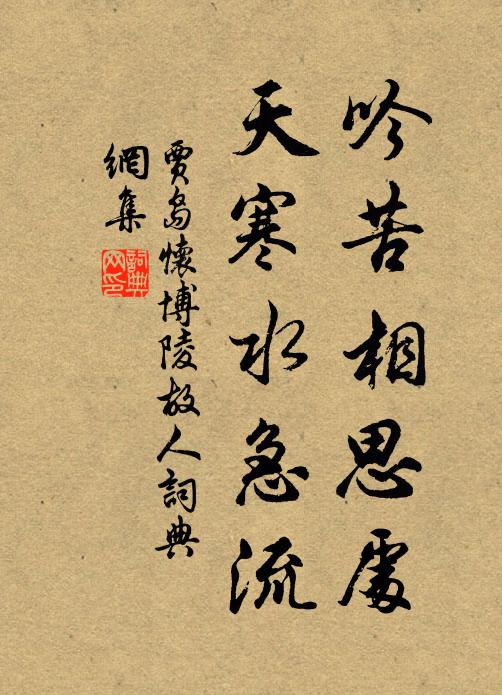 吟苦相思處
天寒水急流
賈島懷博陵故人詞典
網集
詞典
网印